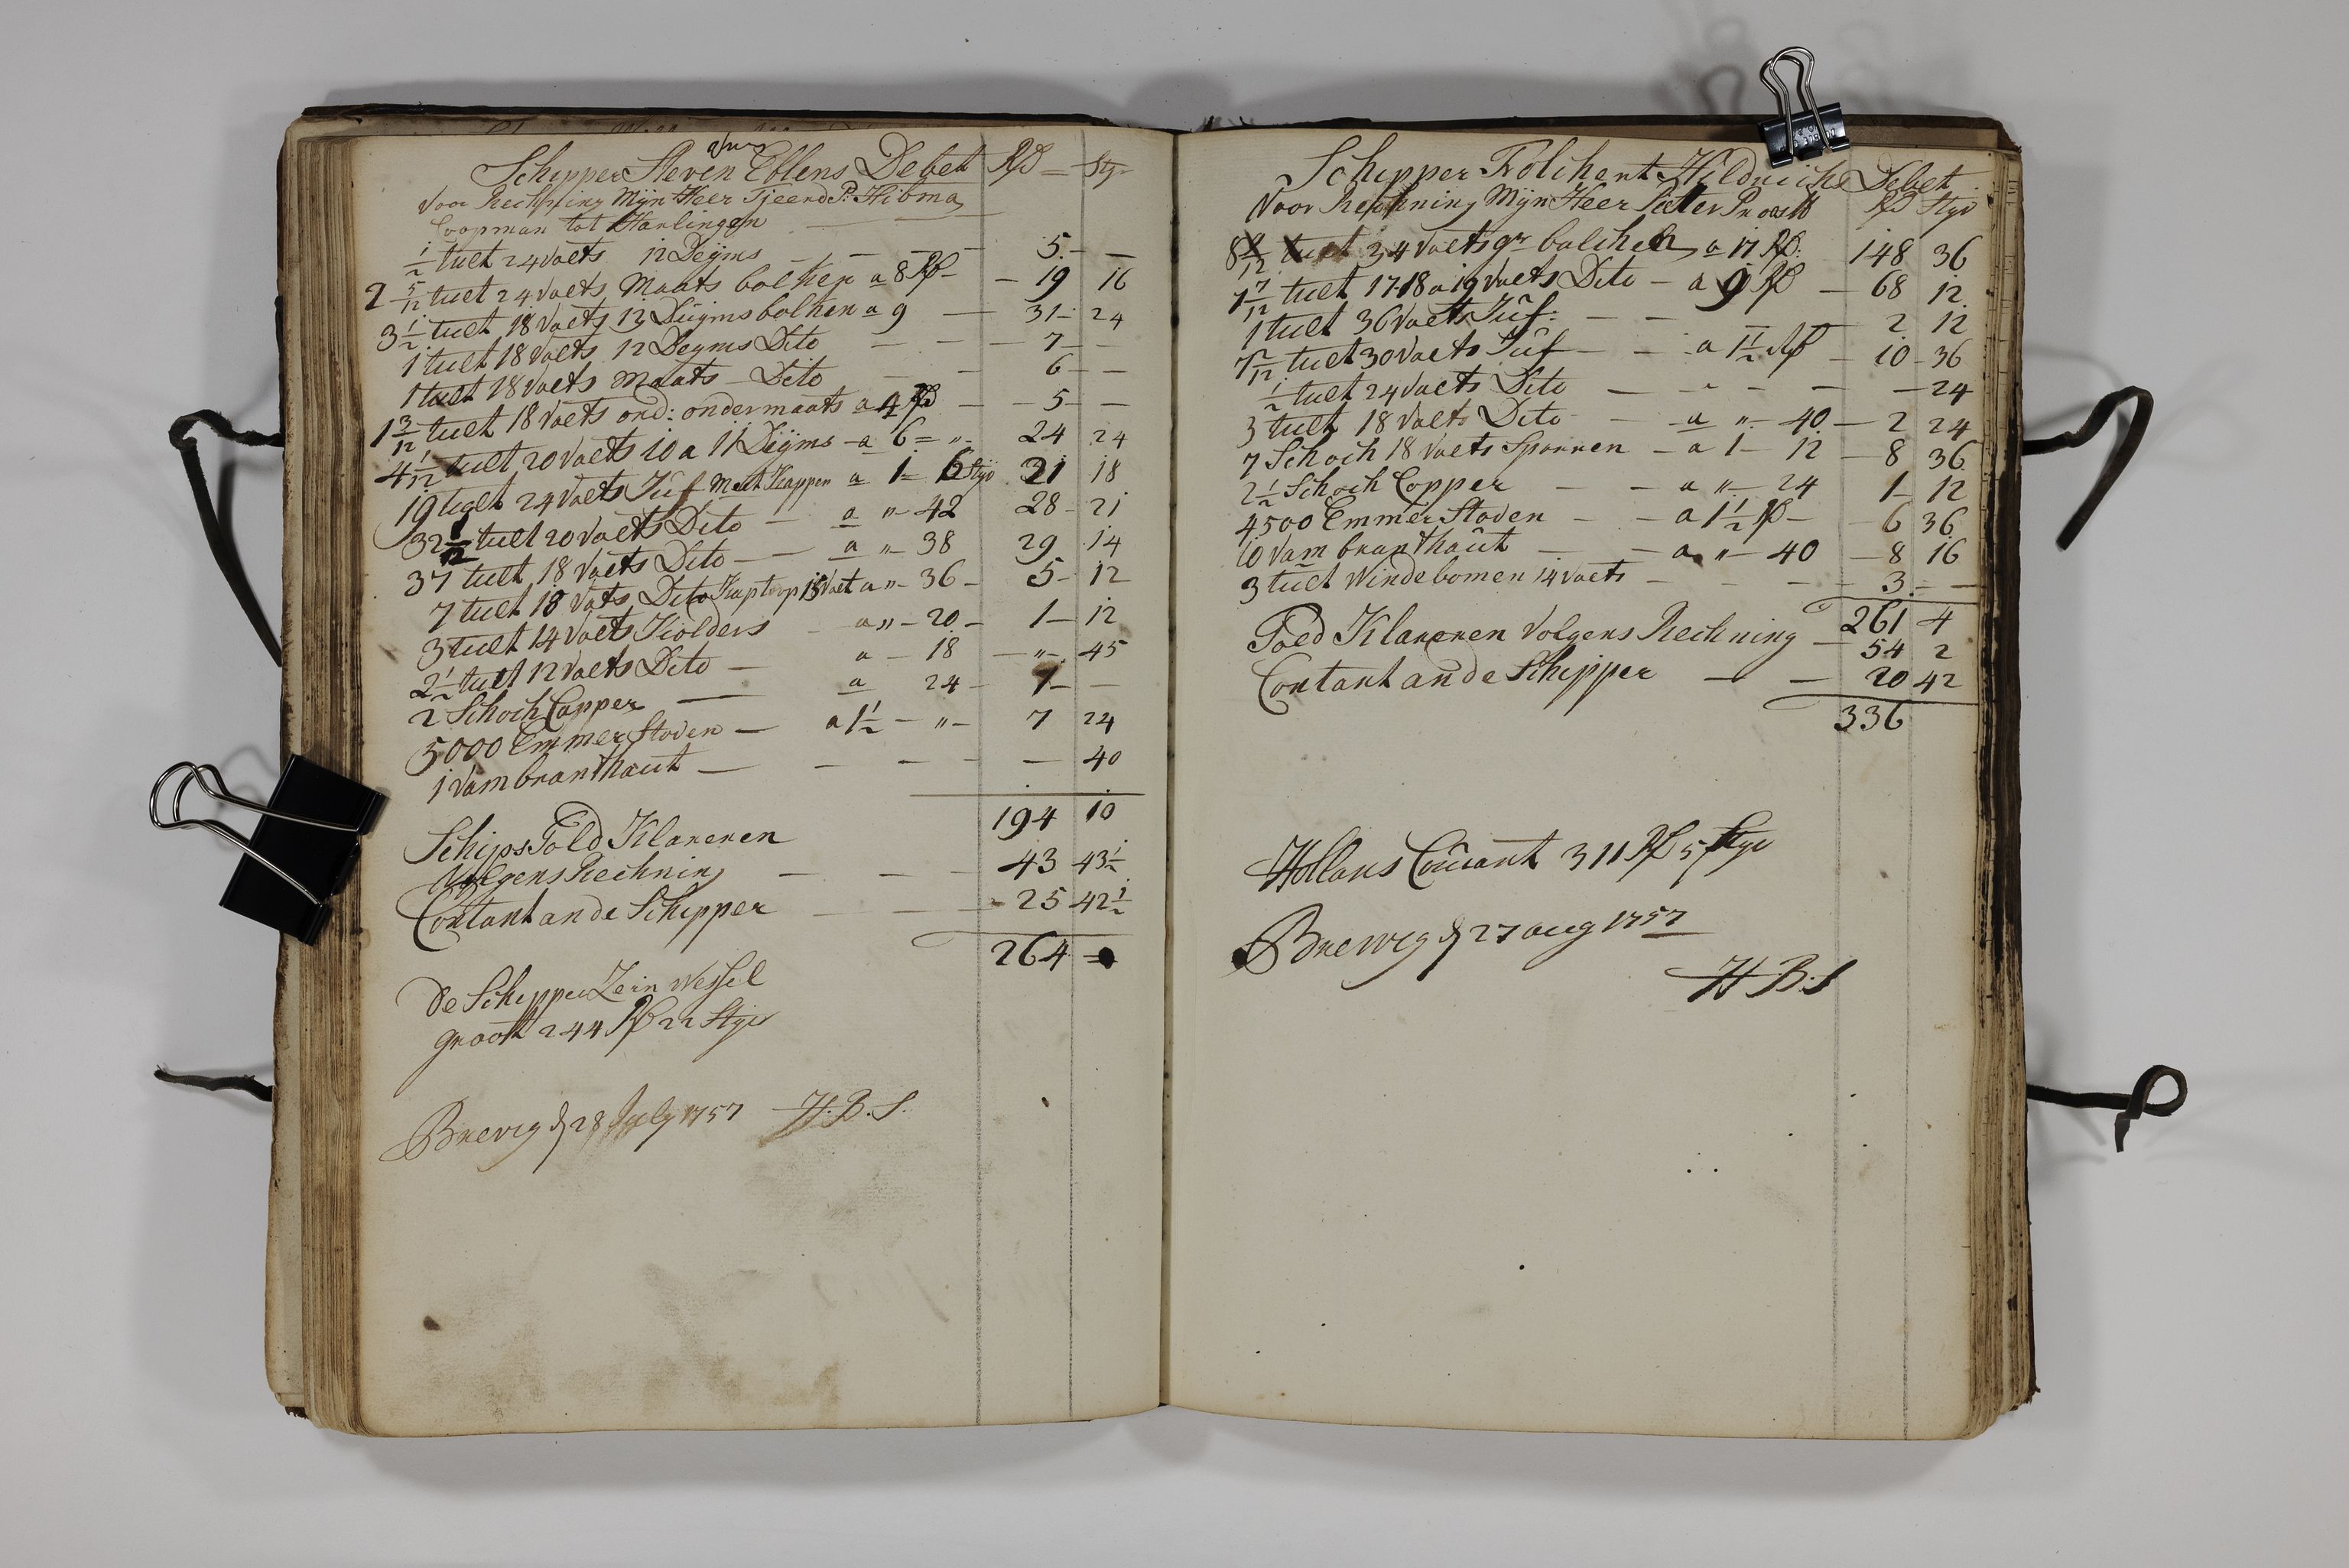 Schipper Steven Eblens Debet Rd Stÿ
Voor Rechning Mijn Heer Tjeerd P: Hibma
Coopman tot Harlingen
1/2 tult 24 Voets 12 Deÿms — — — 5 — —
2 5/12 tult 24 Voets Maats bolken a 8 Rd — 19 16
3 1/2 tult 18 Voets 12 Duÿms bolken a 9 — 31 - 24
1 tult 18 Voets 12 Deyms Dito — — — 7 — —
1 tult 18 Voets Maats — Dito — — 6 — —
1 3/12 tult 18 Voets ond: ondermaats a 4 Rd — 5 — —
4 1/12 tult 20 Voets 10 a 11 Deÿms — a 6 = " — 24 24
19 tult 24 Voets Juf Mat Kappen a 1 — 6 Styv 21 18
32 1/12 tult 20 Voets Dito — a " — 42 28 - 21
37 tult 18 Voets Dito — a " — 38 29 14
7 tult 18 Vots Dito 15 Voet a " — 36 — 5 — 12
3 tult 14 Voets Kolders a " — 20 — 1 — 12
2 1/2 tult 12 Voets Dito — a — 18 — " — 45
2 Schoch Copper — a 24 — 1 — —
5000 Emmer Stoden — a 1 1/2 — " — 7 24
1 Vam branthaut — — — — — 40
194 10
Schips Told Klareren
Volgens Rechning — — — 43 43 1/2
Contant an de Schipper — — — 25 42 1/2
264 =
De Schipper Zein Wessel
groot 244 Rd 22 Styv
Brevig d 28 July 1757 H. B. S.
Schipper Folchert Hildrichs Debet
Voor Rechning Mijn Heer Pieter Proest Rd Styv
tult 34 Voets gr balchen a 17 Rd: 148 36
7 7/12 tult 17-18 a 19 Voets Dito — a 9 Rd — 68 12
1 tult 36 Voets Juf: — — — 2 12
7 2/12 tult 30 Voets Juf — — a 1 1/2 Rd — 10 - 36
1/2 tult 24 Voets Dito — — — — — 24
3 tult 18 Voets Dito — a " — 40 — 2 24
7 Schoch 18 Voets Sparren — a 1 — 12 — 8 36
2 1/2 Schoch Copper — — a " — 24 1 — 12
4500 Emmer Stoden — — a 1 1/2 Rd — 6 36
10 Vam branthaut — — a " — 40 — 8 16
3 tult Windebomen 14 Voets — — — — 3 — —
261 4
Toed Klareren Volgens Rechning — 54 2
Contant an de Schipper — — 20 42
336
Hollans Courant 311 Rd 5 Styv
Brevig d 27 aug 1757
H. B. S